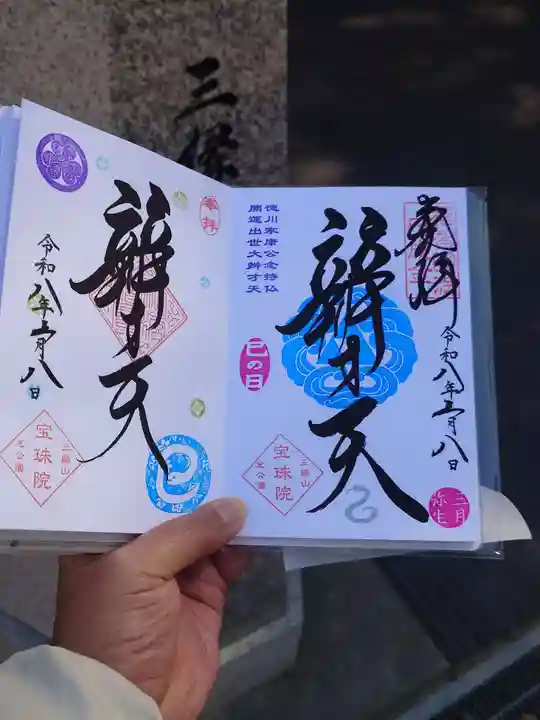 三縁
奉拝
徳川家康公念持仏
開運出世大辨才天
辨才天
巳の日
令和八年三月八日
三縁山
宝珠院
芝公園
三月
弥生
奉拝
辨才天
令和八年三月八日
三縁山
宝珠院
芝公園